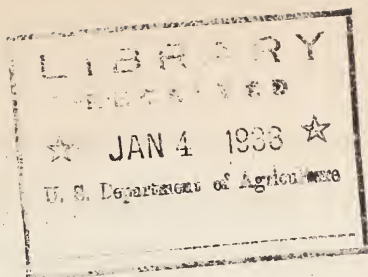 LIBRARY
RECEIVED
☆ JAN 4 ☆
U. S. Department of Agriculture